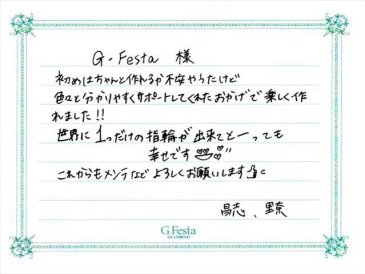 G.Festa 様
初めはちゃんと作れるか不安やったけど
色々と分かりやすくサポートしてくれたおかげで楽しく作
れました!!
世界に1つだけの指輪が出来てとーっても
幸せです
これからもメンテなど よろしくお願いします
昌志、里奈
G.Festa
DIAMOND